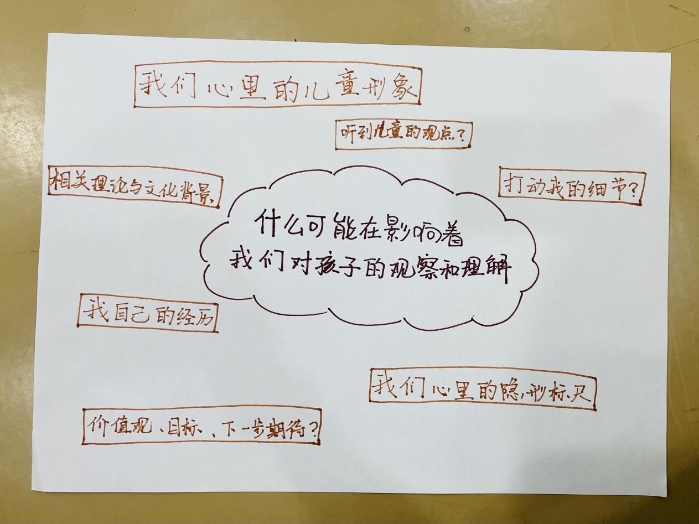 我们心里的儿童形象
听到儿童的观点?
相关理论与文化背景.
打动我的细节?
什么可能在影响着
我们对孩子的观察和理解
我自己的经历
我们心里的隐形标尺
价值观、目标、下一步期待?